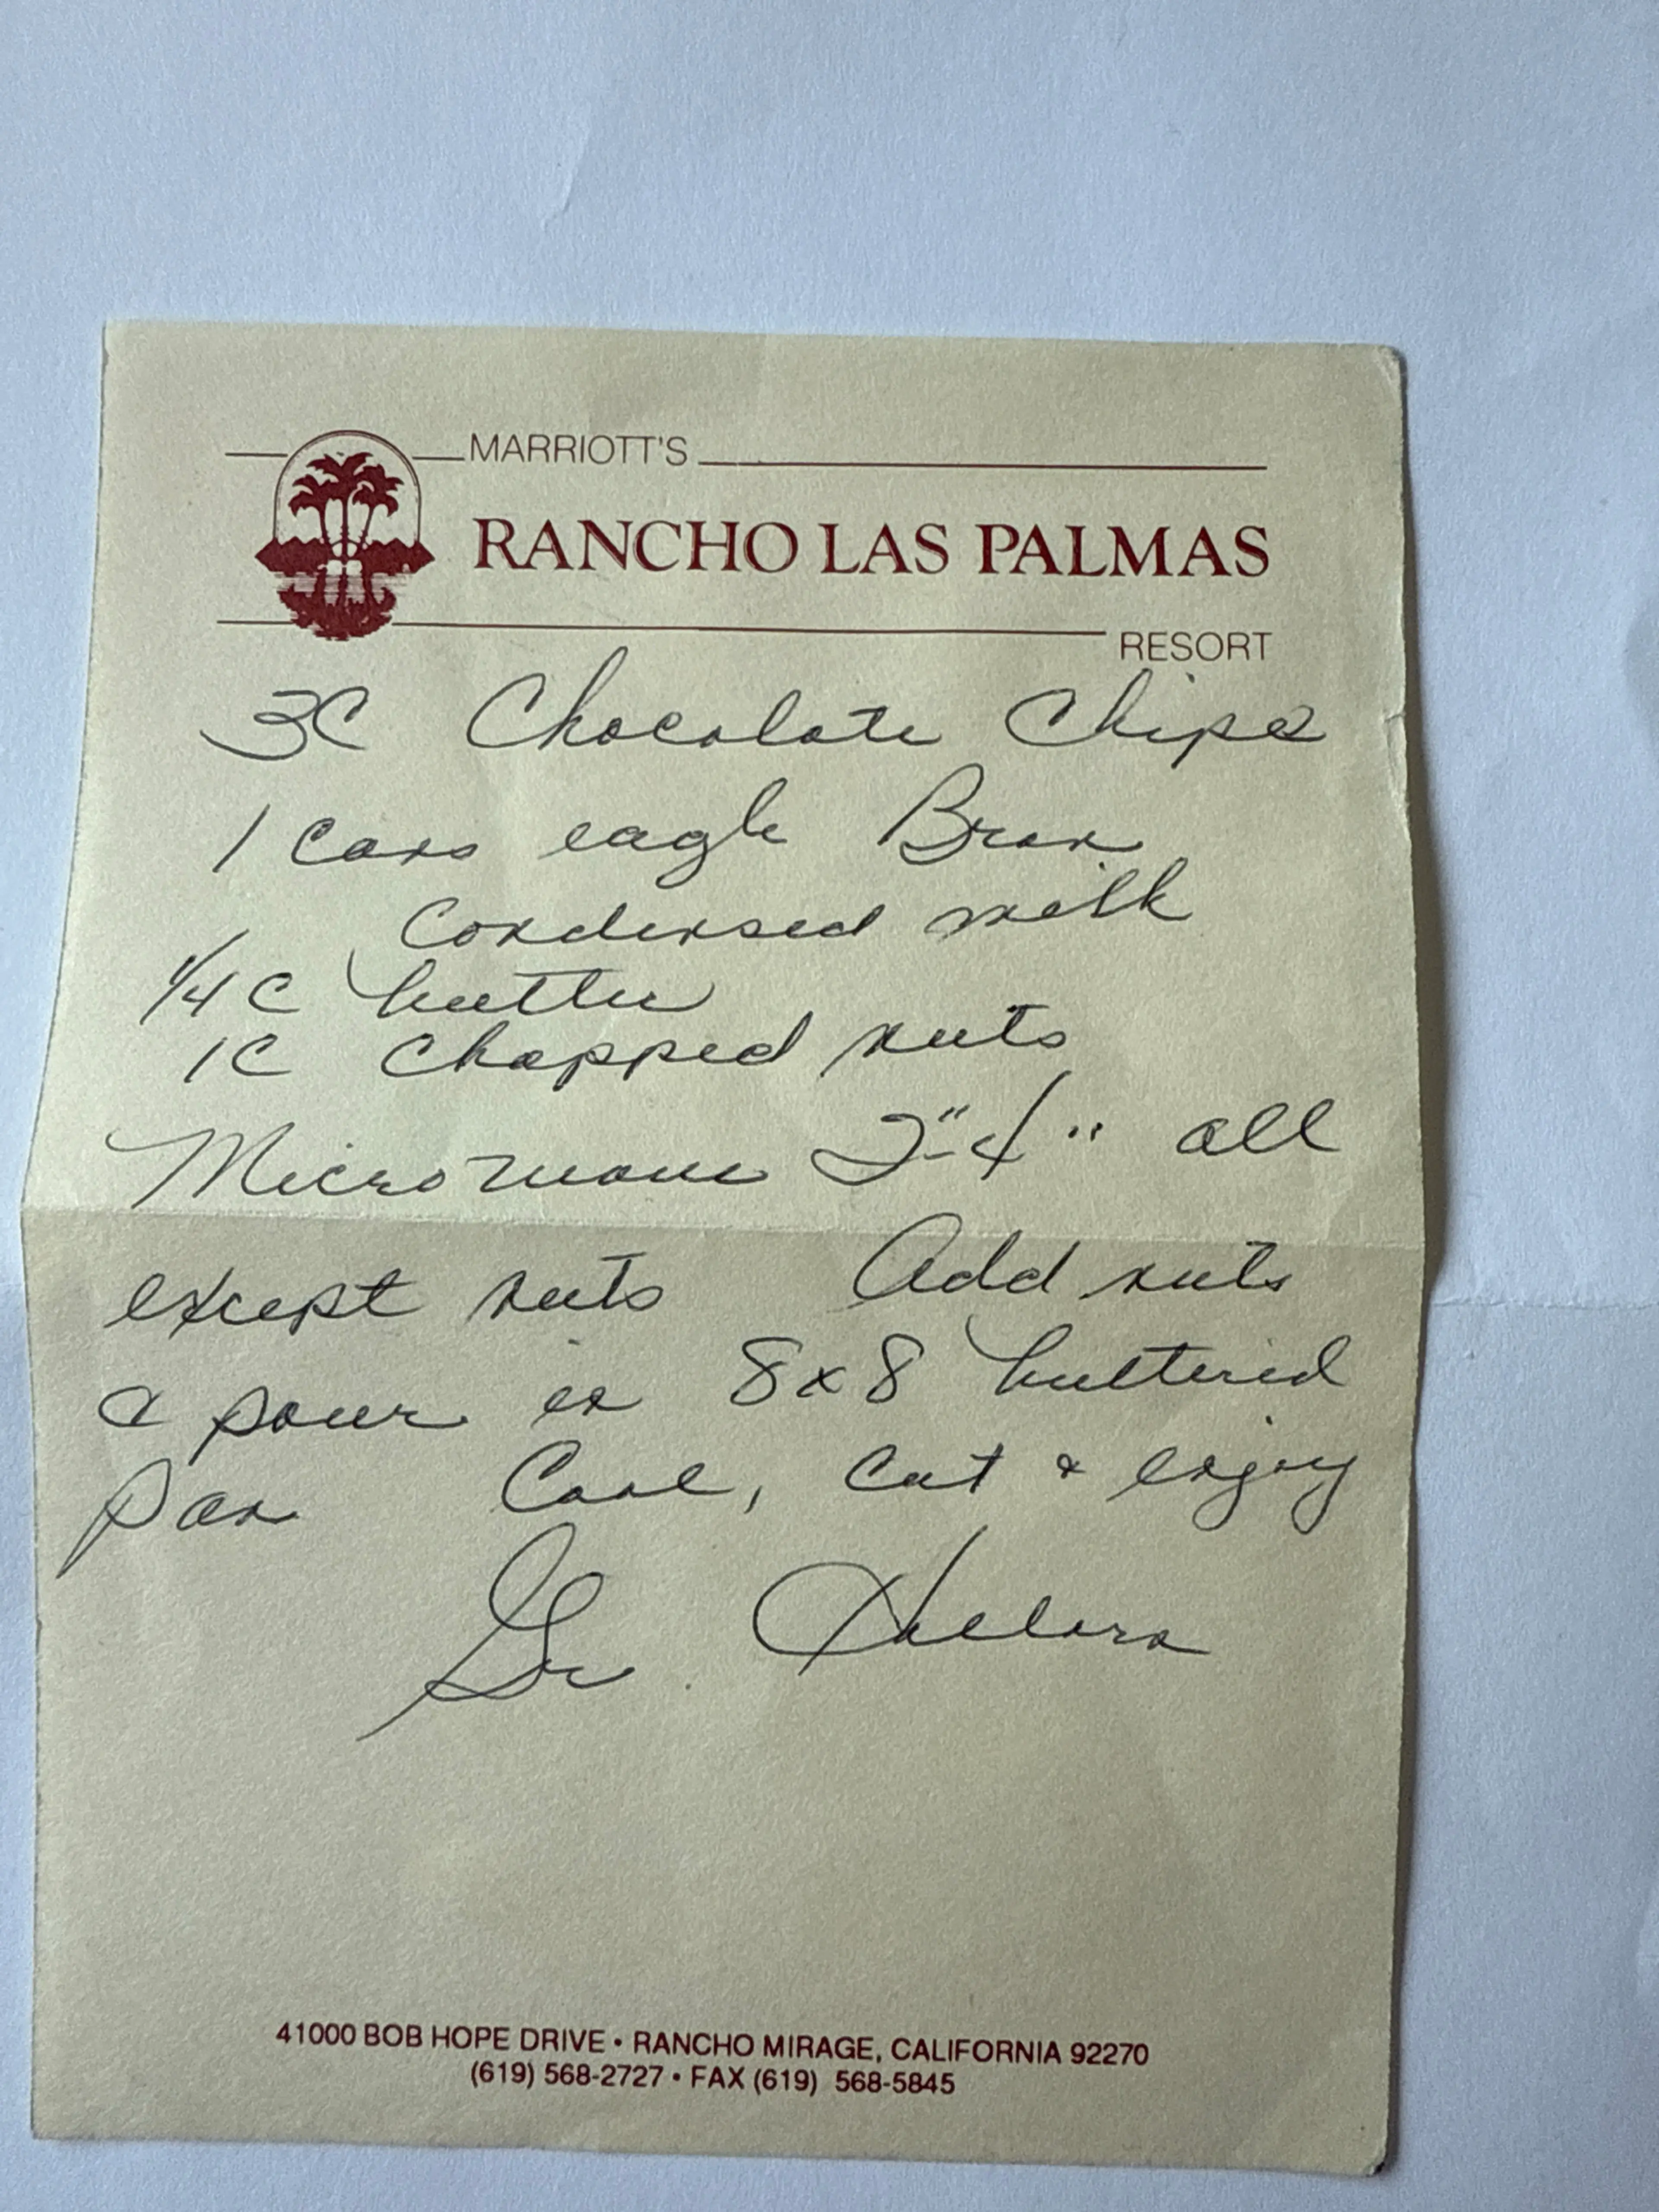 MARRIOTT'S
RANCHO LAS PALMAS
RESORT
3C Chocolate Chips
1 cans eagle Bran
Condensed milk
1/4 C butter
1C Chopped nuts
Microwave 2"-4" all
except nuts Add nuts
& pour in 8x8 buttered
Pan Cool, cut & enjoy
41000 BOB HOPE DRIVE • RANCHO MIRAGE, CALIFORNIA 92270
(619) 568-2727 • FAX (619) 568-5845